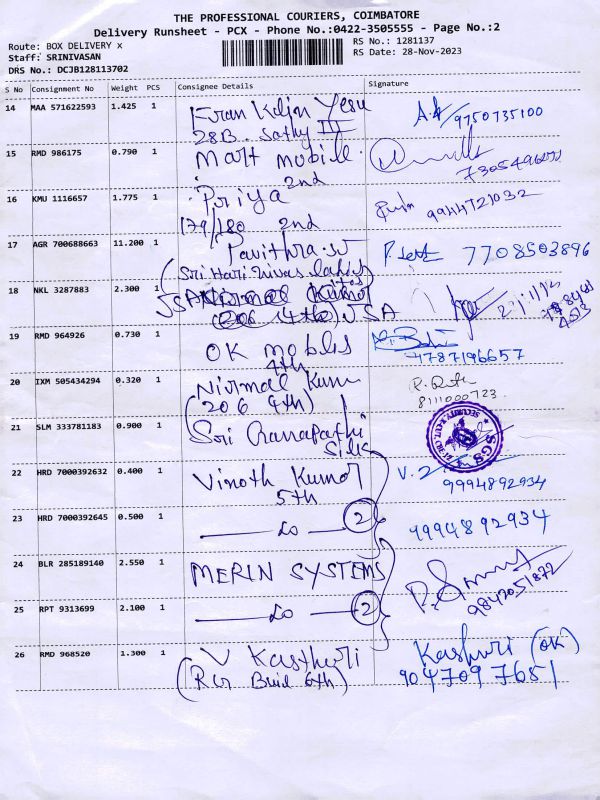 THE PROFESSIONAL COURIERS, COIMBATORE
Delivery Runsheet - PCX - Phone No.:0422-3505555 - Page No.:2
Route: BOX DELIVERY x
RS No.: 1281137
Staff: SRINIVASAN
RS Date: 28-Nov-2023
DRS No.: DCJB128113702
S No Consignment No Weight PCS Consignee Details Signature
14 MAA 571622593 1.425 1
28B. Sathy III
9750735100
15 RMD 986175 0.790 1 Mart mobile.
2nd
16 KMU 1116657 1.775 1 Priya
179/180 2nd
9944721032
17 AGR 700688663 11.200 1 Pavithra
7708503896
(Sri Hari Nivas
18 NKL 3287883 2.300 1
19 RMD 964926 0.730 1 OK mobles
4th
4787196657
20 IXM 505434294 0.320 1 Nirmal Kum
(206 4th)
8111000723
21 SLM 333781183 0.900 1 Sri Ganapathi
Silk
SGS
22 HRD 7000392632 0.400 1 Vinoth Kumar
5th
9994892934
23 HRD 7000392645 0.500 1 do 2
9994892934
24 BLR 285189140 2.550 1 MERIN SYSTEMS
9842051872
25 RPT 9313699 2.100 1 do 2
26 RMD 968520 1.300 1 V Kasthuri
Kashuri (OK)
6th)
9047097651